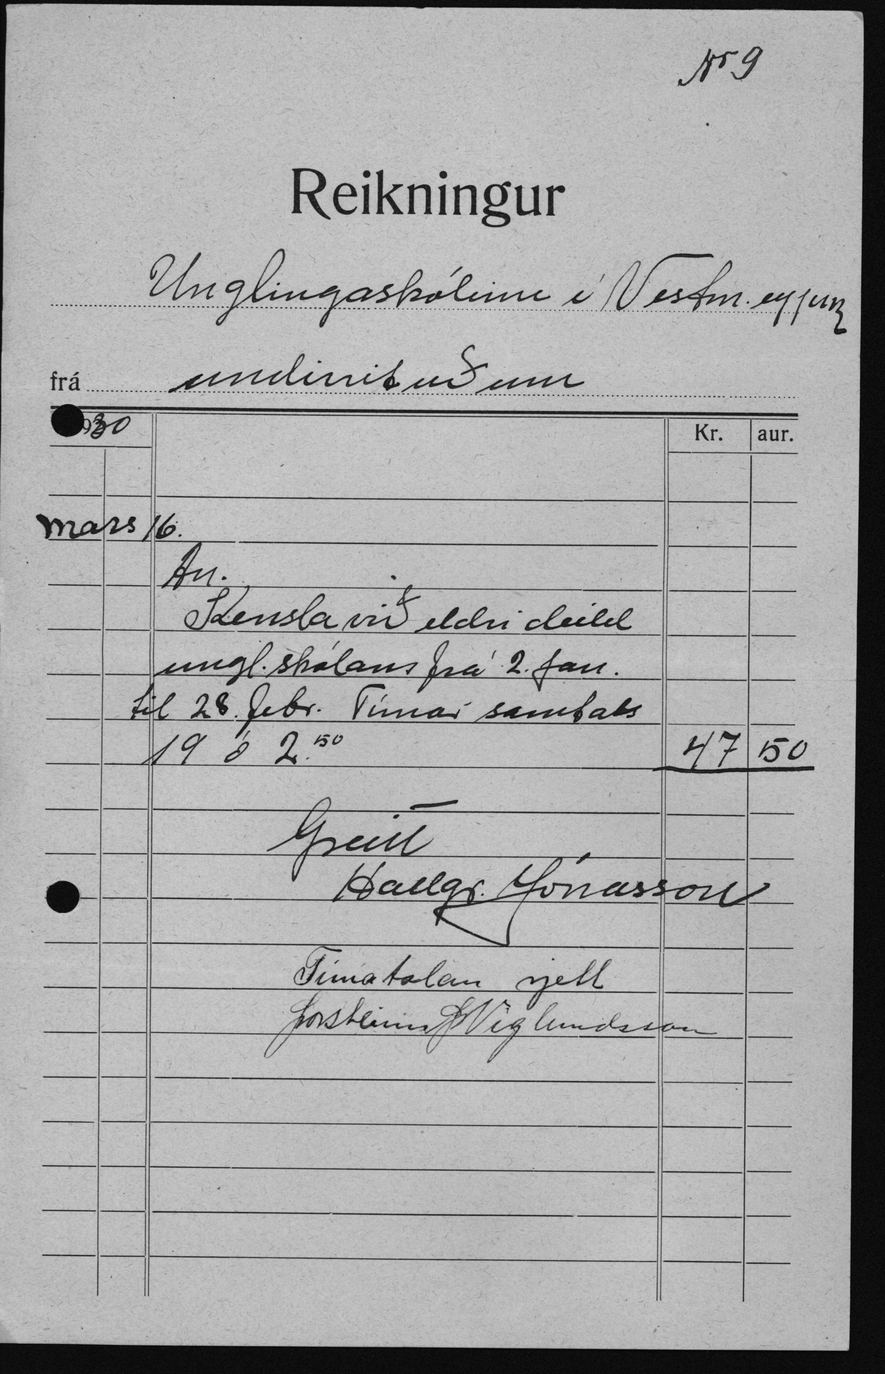 Nr 9
Reikningur
Unglingaskólinn í Vestm.eyjum
frá undirrituðum
1930
Kr. aur.
Mars 16.
An.
Kensla við eldri deild
ungl.skólans frá 2. jan.
til 28. febr. Tímar samtals
19 á 2.50 47 50
Greitt
Hallgr. Jónasson
Tímatalan rjett
Þorsteinn Þ Víglundsson